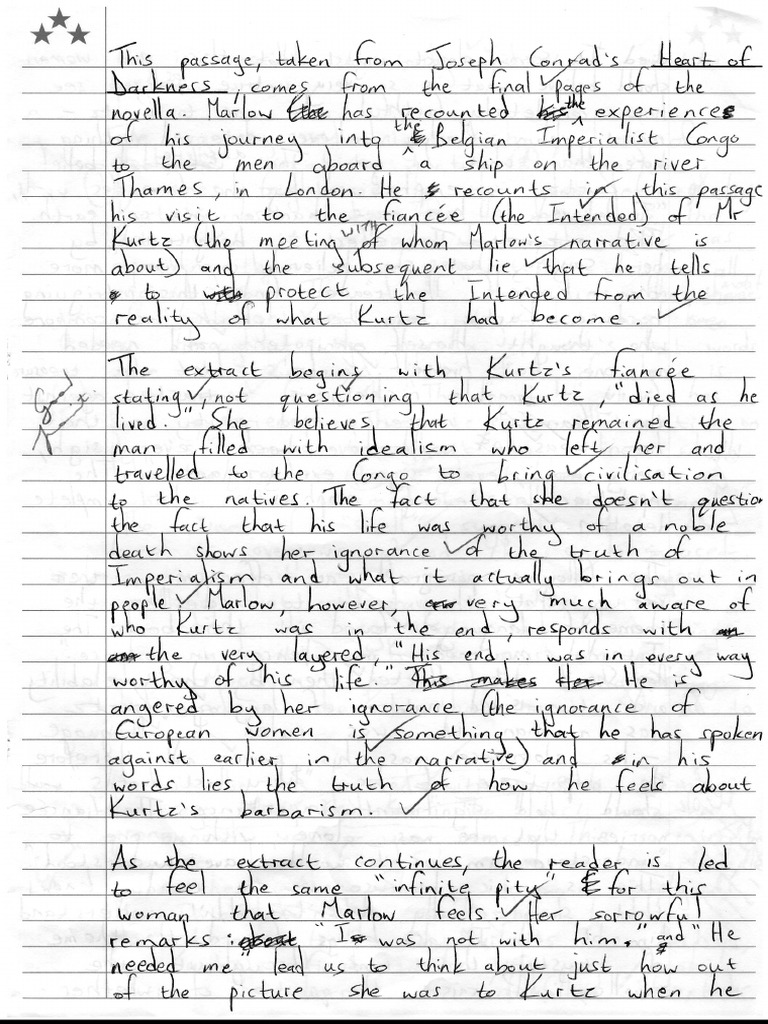 This passage, taken from Joseph Conrad's Heart of
Darkness, comes from the final pages of the
novella. Marlow has recounted the experiences
of his journey into the Belgian Imperialist Congo
to the men aboard a ship on the river
Thames, in London. He recounts in this passage
his visit to the fiancée (the Intended) of Mr
Kurtz (the meeting with of whom Marlow's narrative is
about) and the subsequent lie that he tells
to protect the Intended from the
reality of what Kurtz had become.
The extract begins with Kurtz's fiancée
stating, not questioning that Kurtz, "died as he
lived." She believes that Kurtz remained the
Good
man filled with idealism who left her and
travelled to the Congo to bring civilisation
to the natives. The fact that she doesn't question
the fact that his life was worthy of a noble
death shows her ignorance of the truth of
Imperialism and what it actually brings out in
people. Marlow, however, very much aware of
who Kurtz was in the end, responds with
the very layered, "His end... was in every way
worthy of his life." This makes her He is
angered by her ignorance (the ignorance of
European women is something that he has spoken
against earlier in the narrative) and in his
words lies the truth of how he feels about
Kurtz's barbarism.
As the extract continues, the reader is led
to feel the same "infinite pity" for this
woman that Marlow feels. Her sorrowful
remarks: about "I was not with him," and "He
needed me" lead us to think about just how out
of the picture she was to Kurtz when he